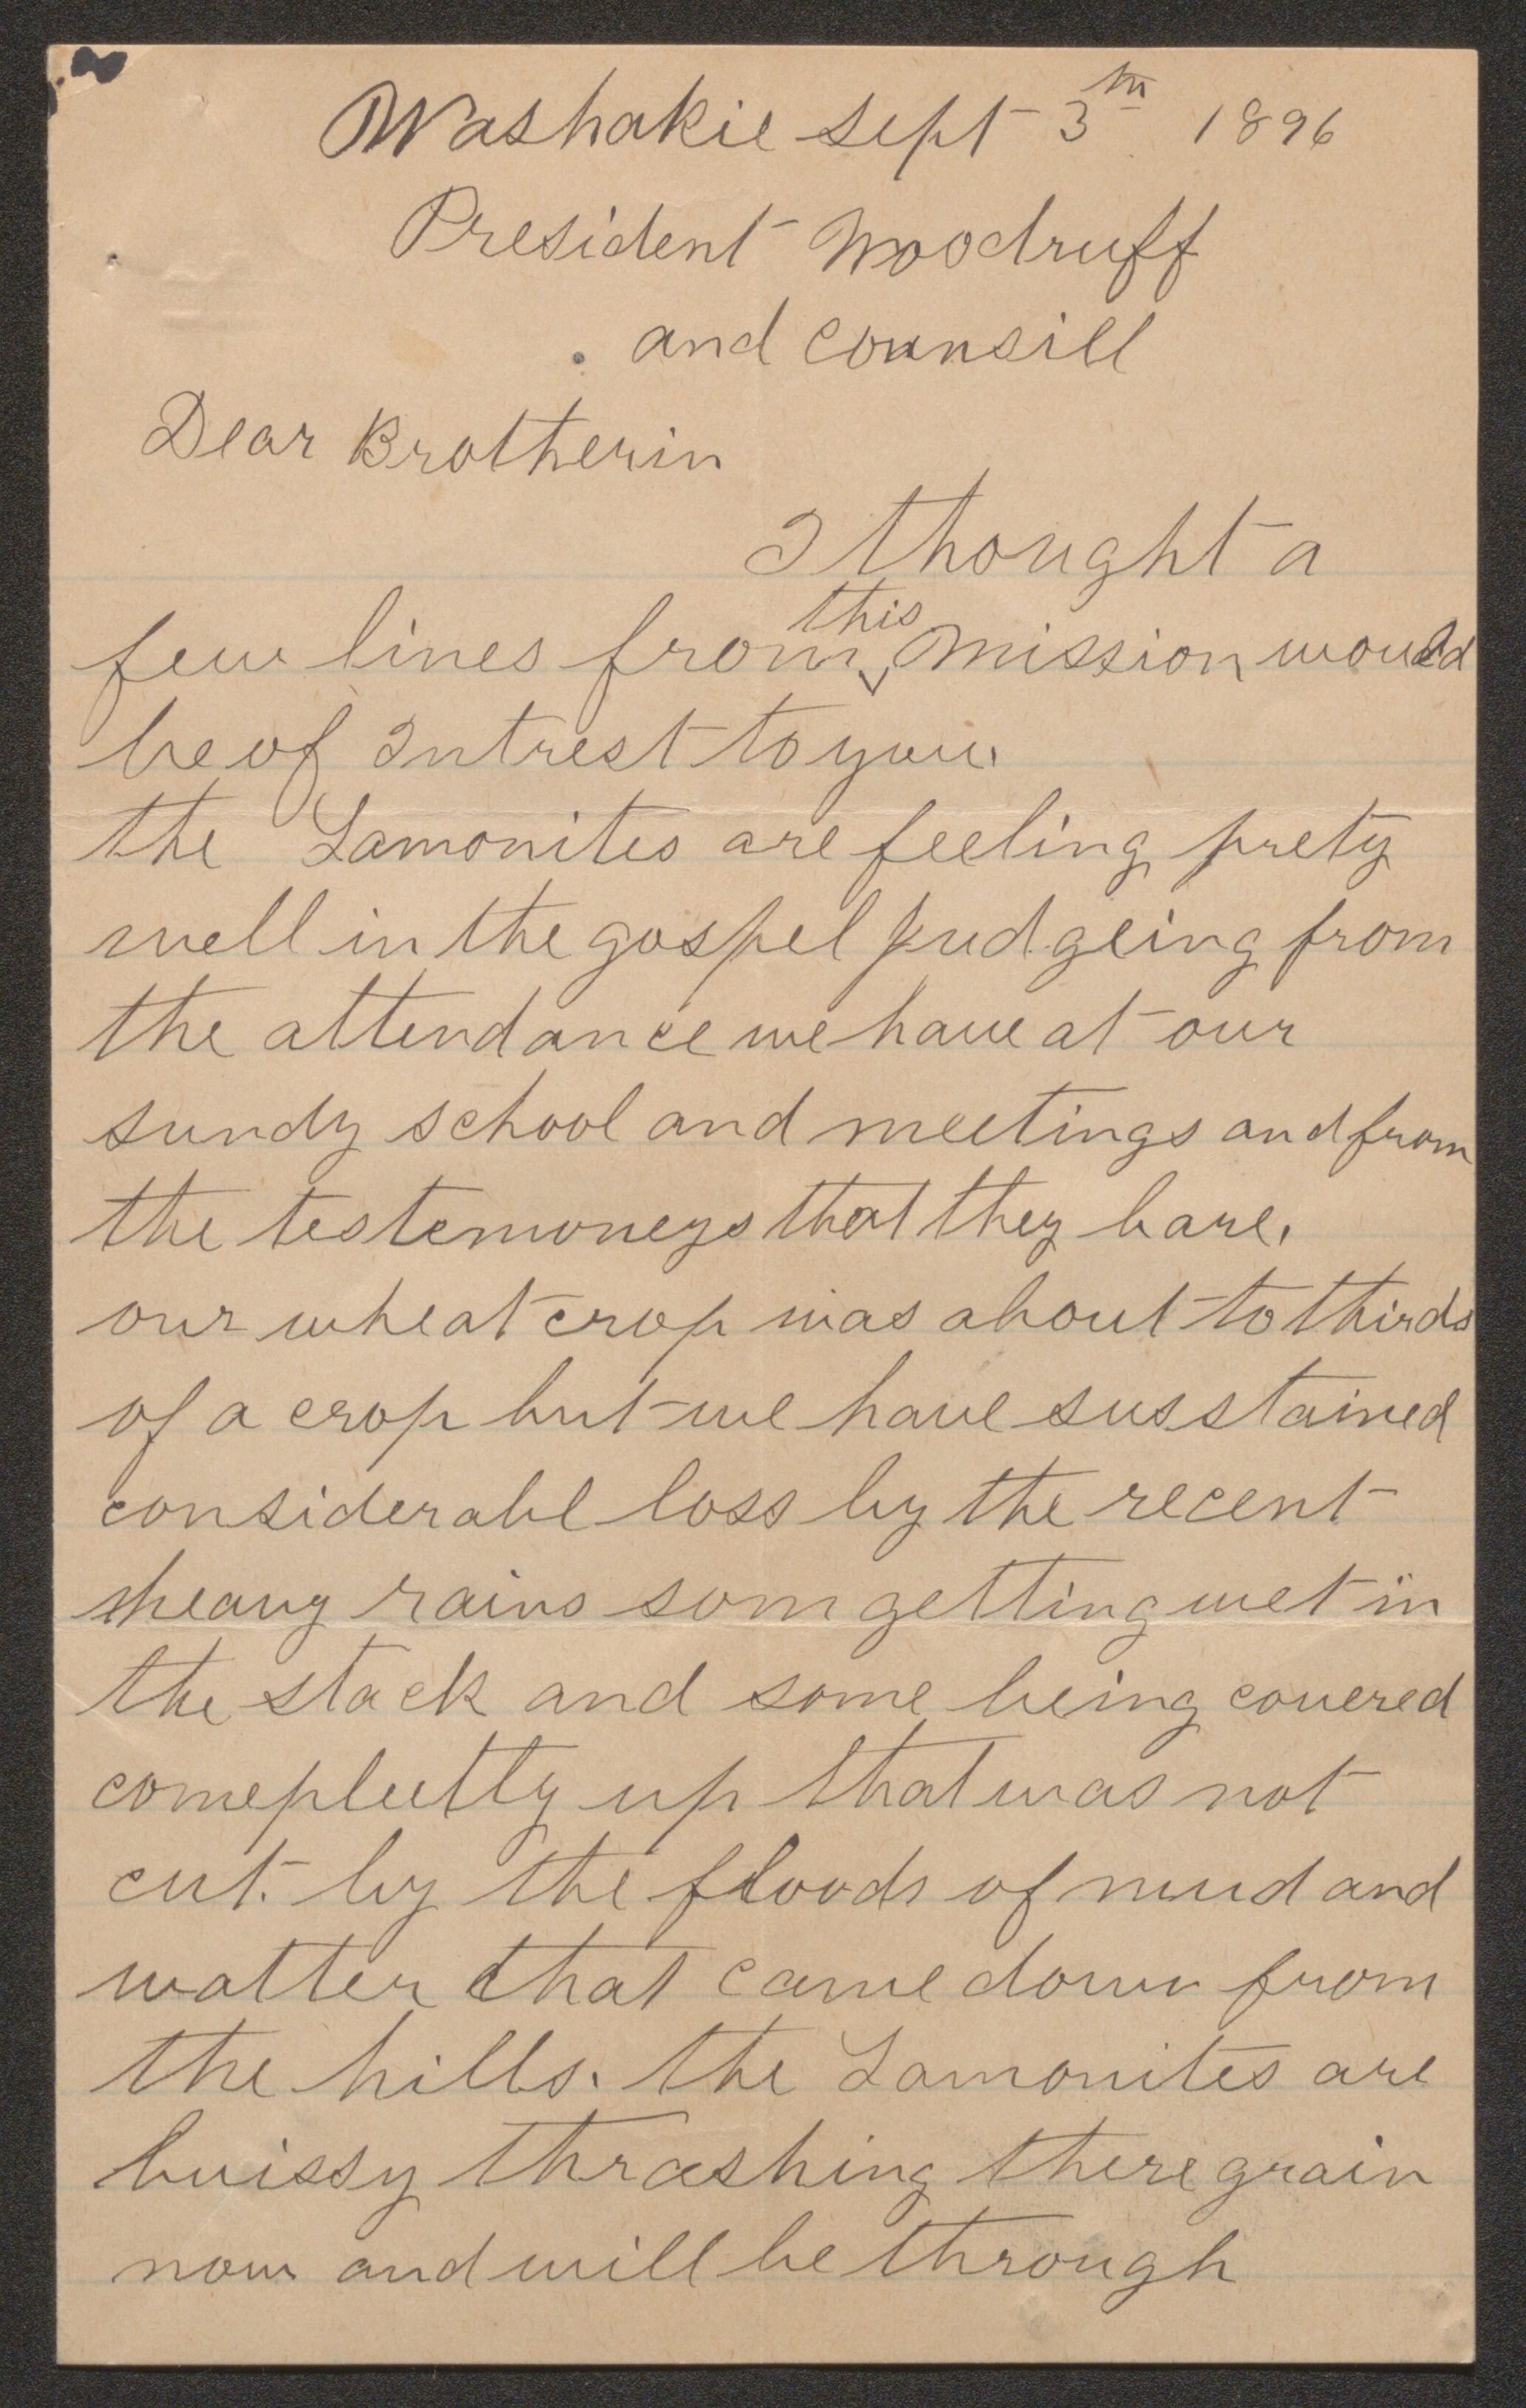 Washakie sept 3th 1896
President Woodruff
and counsill
Dear Brotherin
I thought a
few lines from this mission would
be of Intrest to you.
the Lamonites are feeling prety
well in the gospel judgeing from
the attendance we have at our
sundy school and meetings and from
the testemoneys that they bare.
our wheat crop was about to thirds
of a crop but we have susstained
considerabl loss by the recent
heavy rains som getting wet in
the stack and some being covered
comepleetty up that was not
cut. by the floods of mud and
watter that came down from
the hills. the Lamonites are
buissy thrashing there grain
now and will be through